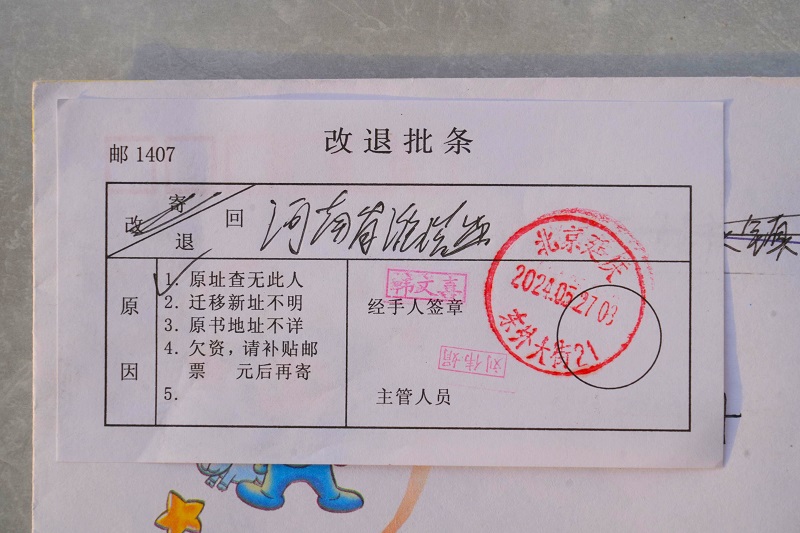 邮 1407
改退批条
改 寄 退 回 河南省
原因
1. 原址查无此人
2. 迁移新址不明
3. 原书地址不详
4. 欠资，请补贴邮
票 元后再寄
5.
韩文真
经手人签章
主管人员
北京延庆
2024.05.27.08
东外大街21